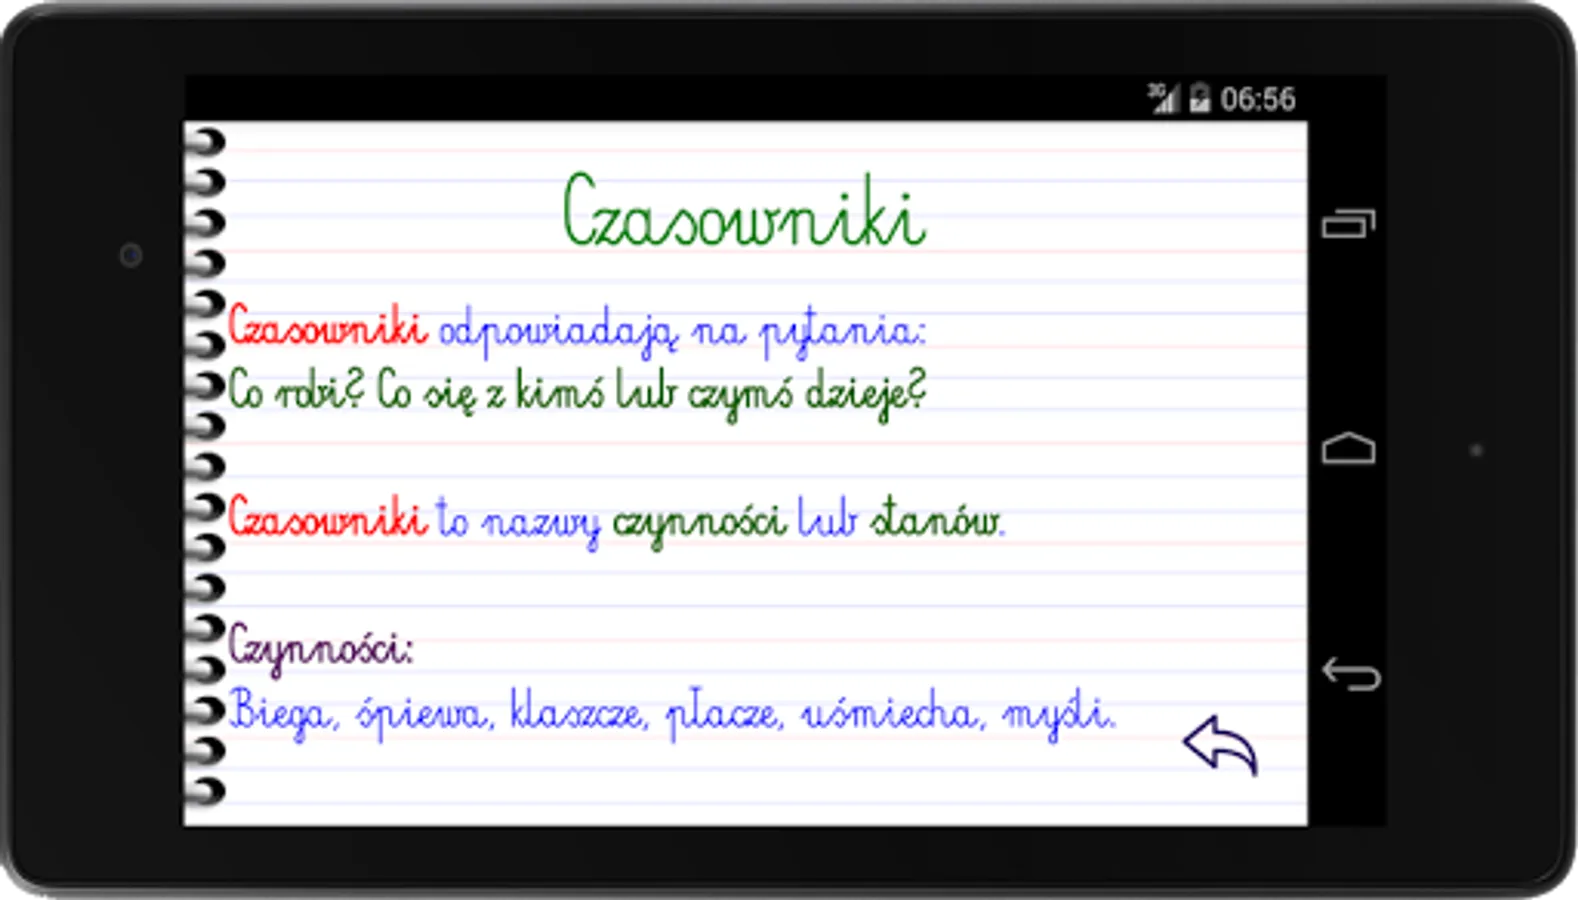 3G 06:56
Czasowniki
Czasowniki odpowiadają na pytania:
Co robi? Co się z kimś lub czymś dzieje?
Czasowniki to nazwy czynności lub stanów.
Czynności:
Biega, śpiewa, klaszcze, płacze, uśmiecha, myśli.